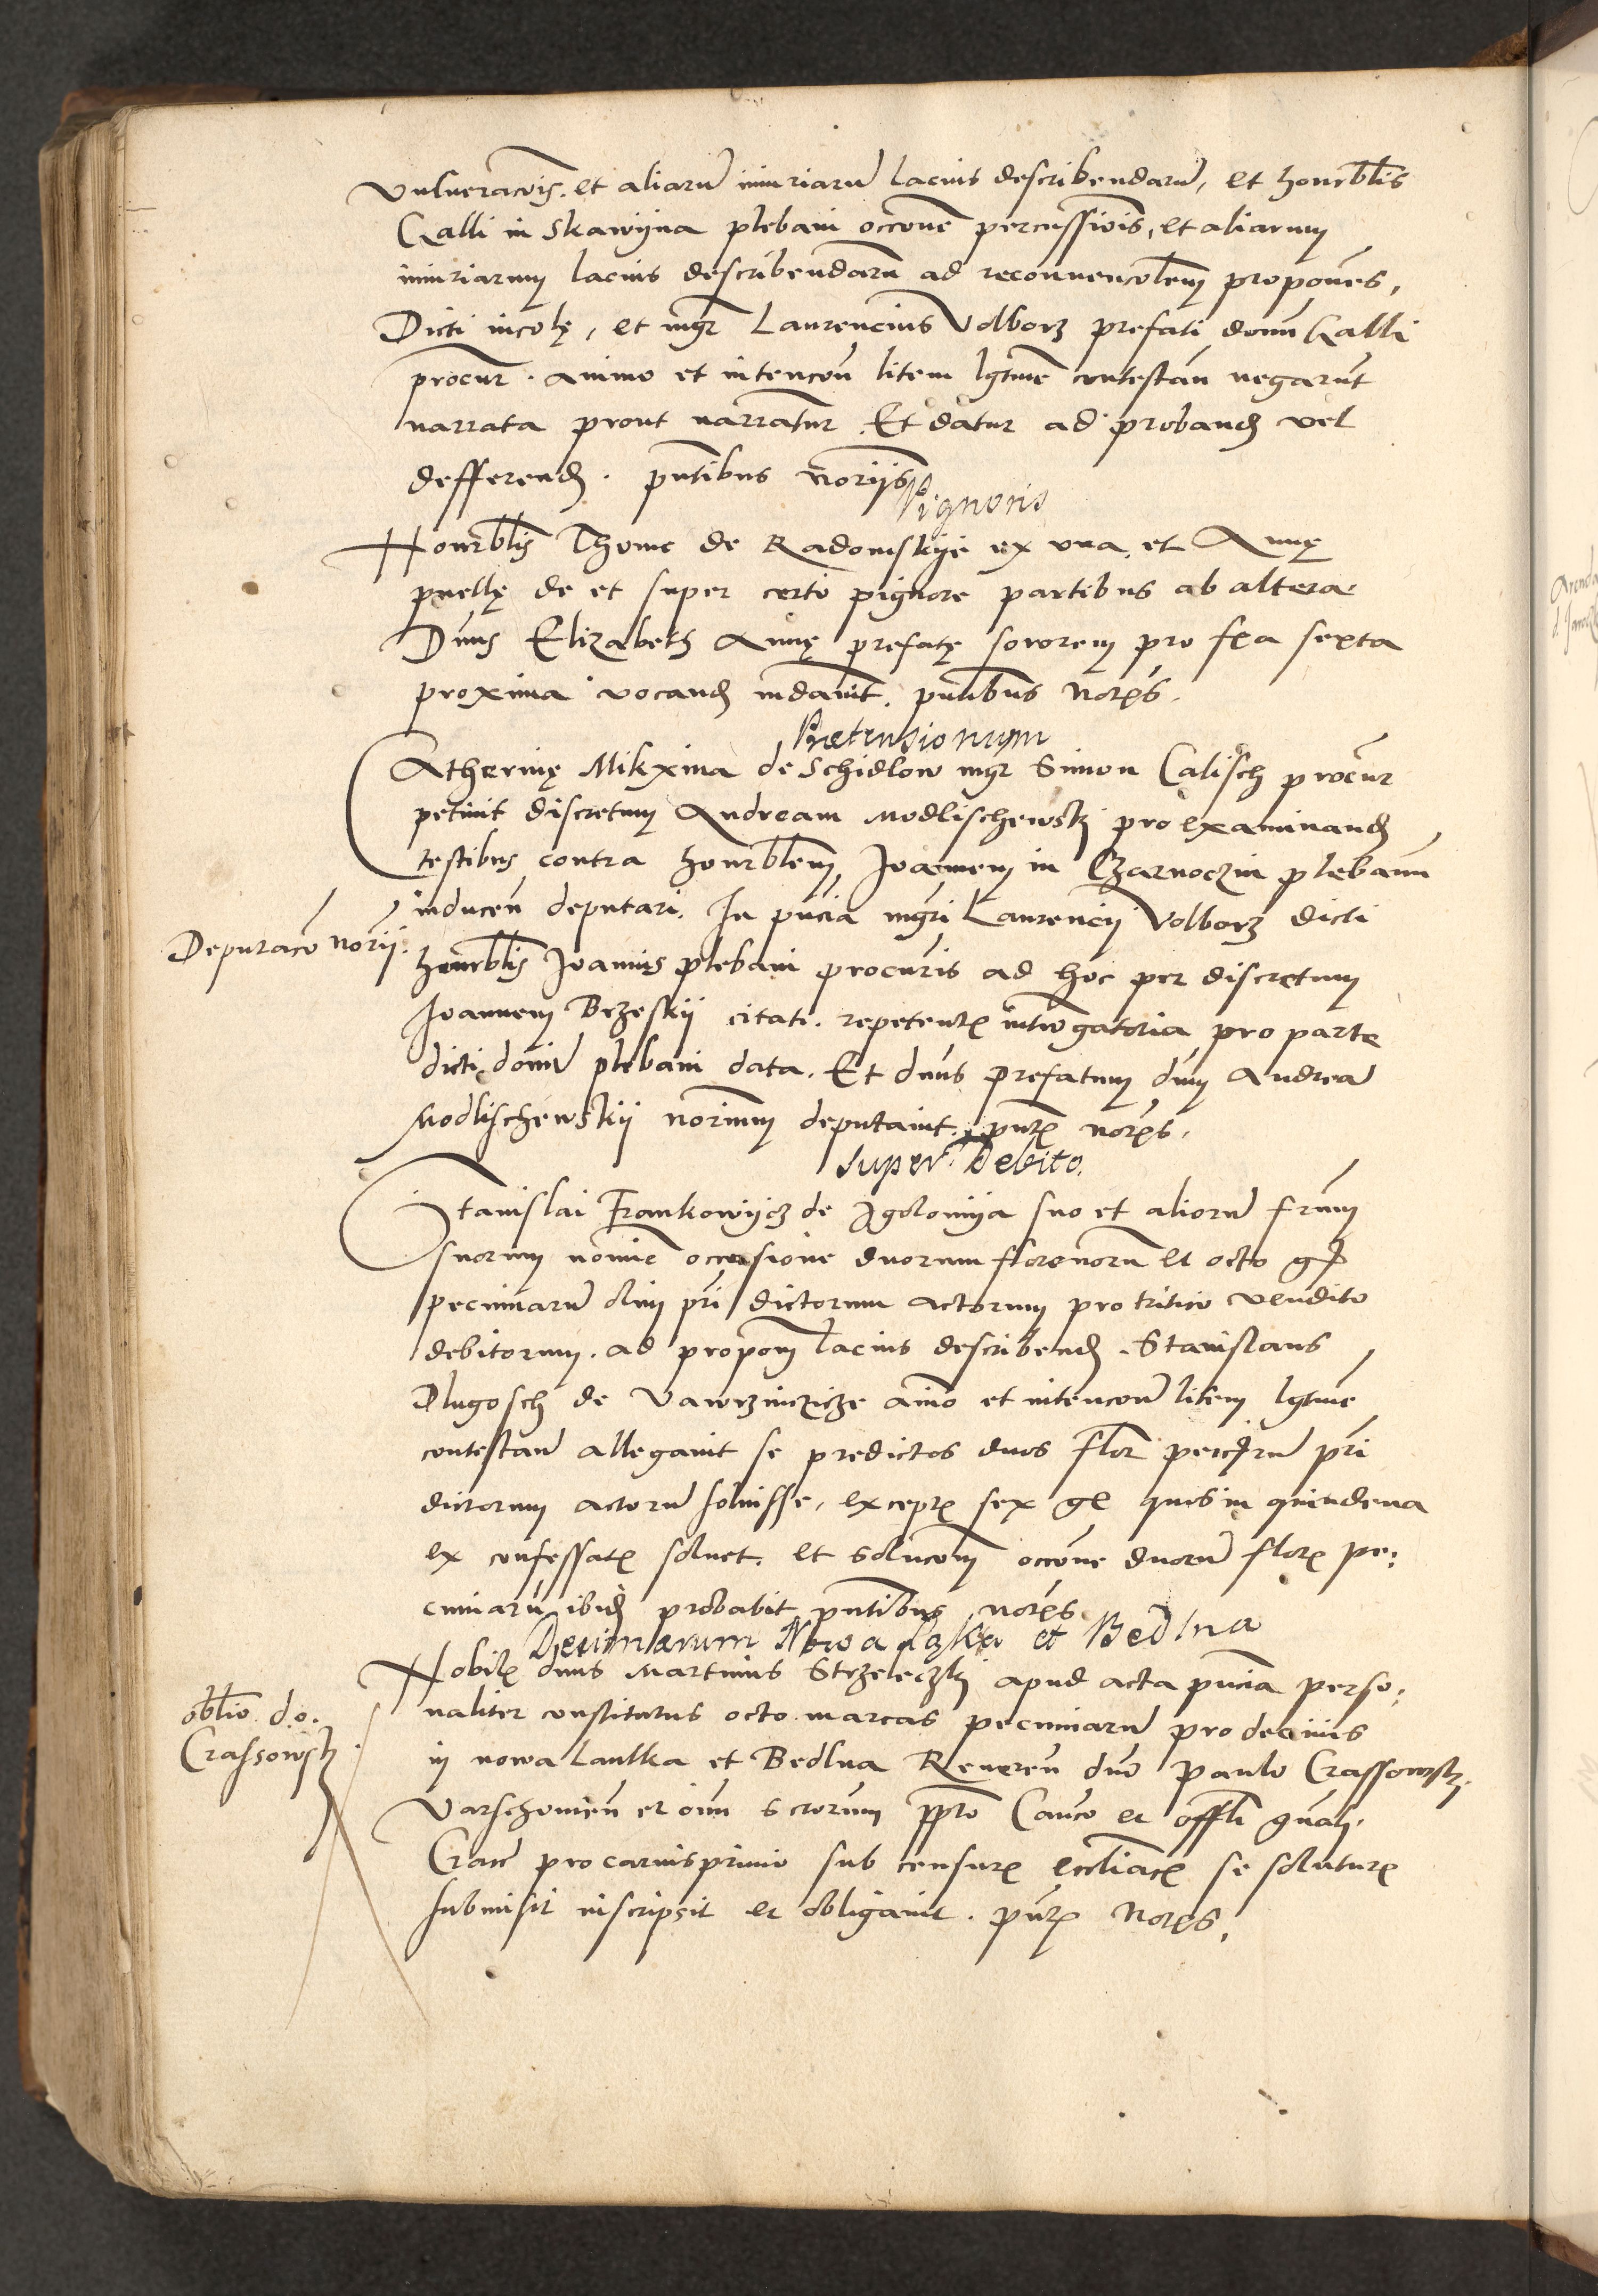 vulneracois. et aliarū iniuriarū lacius describendarū, et honrblis
Galli in Skawyna plebani occone percussiois, et aliarum
iniuriarum lacius describendarū ad reconuencolem propones,
Dicti incolę, et mgr Laurencius Volborz prefati domi Galli
procur. animo et intencon litem lgtme contestan negarūt
narrata prout narratur. Et datur ad proband vel
defferend. pntibus noriis
Pignoris
Honrblis Thome de Radomskye ex vna et Annę
puellę de et super certo pignore partibus ab altera.
Dnus Elizabeth Annę prefatę sororem pro fia sexta
proxima vocand mdauit. pntibus nores.
Pretensionum
Catherinę Mikxina de Schidlow mgr Simon Calisch procur
petiuit discretum Andream Modlischewski pro examinand
testibus contra honrblem Joannem in Czarnoczin plebanū
inducen deputari. In pncia mgri Laurencii Volborz dicti
Deputaco norii.
honrblis Joannis plebani procuris ad hoc per discretum
Joannem Brzeskii citati. repeten introgatoria pro parte
dicti domi plebani data. Et dnus prefatum dnm Andreā
Modlischewskii norium deputauit. pnt nores.
Super Debito.
Stanislai Frankowycz de Igolomya suo et aliorū frum
suorum nomie occasione duorum florenorū et octo gr
pecuniarū olim pri dictorum actorum pro tritico vendito
debitorum. ad propon lacius describend. Stanislaus
Dlugosch de Vawrzinczicze aimo et intencon litem lgtme
contestan allegauit se predictos duos flor pecūrū pri
dictorum actorū soluisse, except sex gr quos in quindena
ex confessat soluet. et solucom occone duorū flor pe:
cuniarū ibid probabit pntibus nores
Decimarum Nowa Laka et Bedlna
Nobil dnus Martinus Strzeleczki apud acta pncia perso:
oblio d.o.
Crassowsk.
naliter constitutus octo marcas pecuniarū pro decimis
in nowa Lanka et Bedlna Reueren dno Paulo Crassowsk.
Varschouien et oim sctorum ppto Canco et offli gnali.
Crac pro carnispriuio sub censur eccliac se solutur
submisit inscripsit et obligauit. pnt nores.